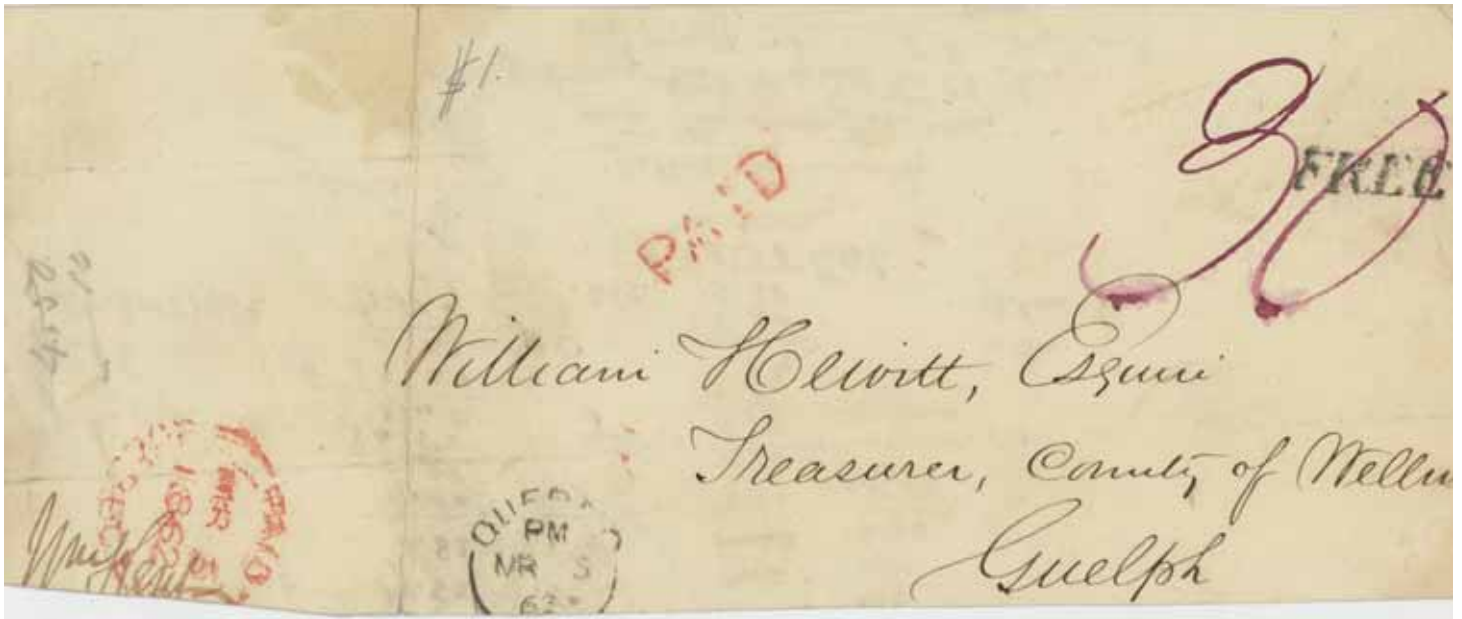 $1.
30
FREE
PAID
William Hewitt, Esquire
Treasurer, County of Welln
Guelph
QUEBEC
PM
MR 5
63
1862